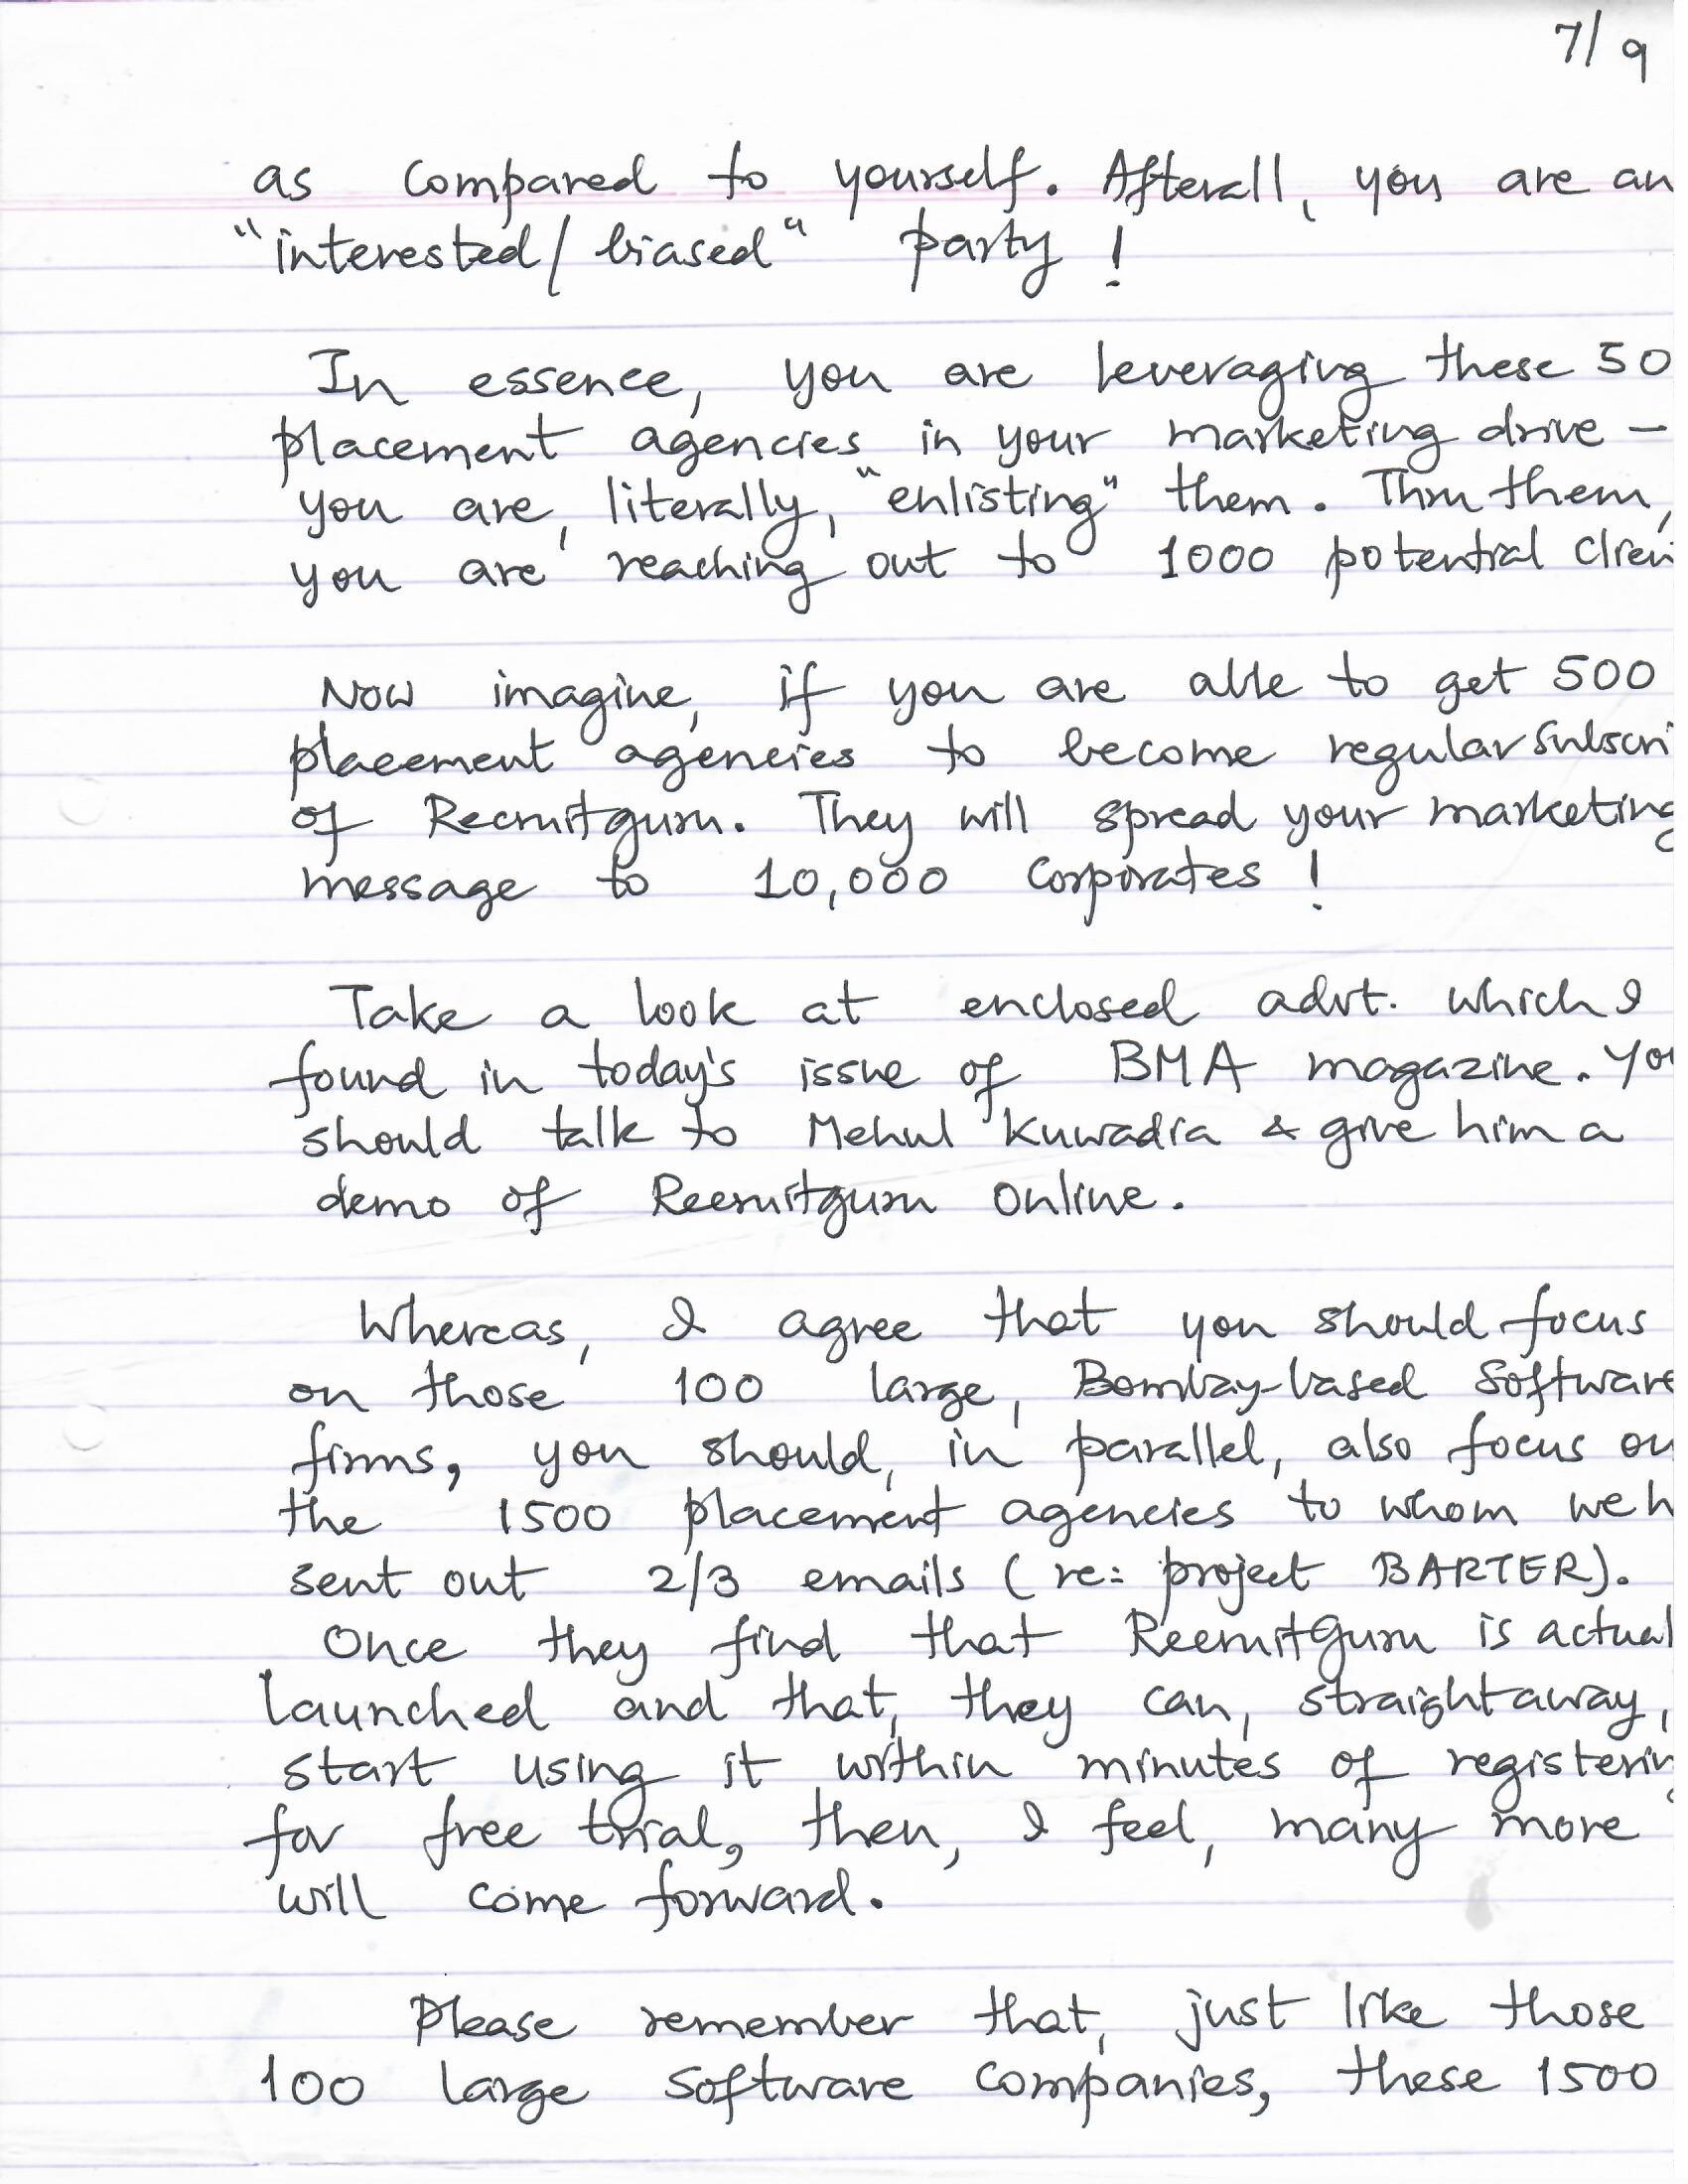 7/9
as compared to yourself. Afterall, you are an
"interested/biased" party!
In essence, you are leveraging these 50
placement agencies in your marketing drive –
you are, literally, "enlisting" them. Thru them,
you are reaching out to 1000 potential Clien
Now imagine, if you are able to get 500
placement agencies to become regular Subscri
of Recruitguru. They will spread your marketing
message to 10,000 Corporates!
Take a look at enclosed advt. which I
found in today's issue of BMA magazine. You
should talk to Mehul Kuwadia & give him a
demo of Recruitguru Online.
Whereas, I agree that you should focus
on those 100 large, Bombay-based Software
firms, you should, in parallel, also focus on
the 1500 placement agencies to whom we h
sent out 2/3 emails (re: project BARTER).
Once they find that RecruitGuru is actual
launched and that, they can, straightaway,
start using it within minutes of registering
for free trial, then, I feel, many more
will come forward.
Please remember that, just like those
100 large Software Companies, these 1500